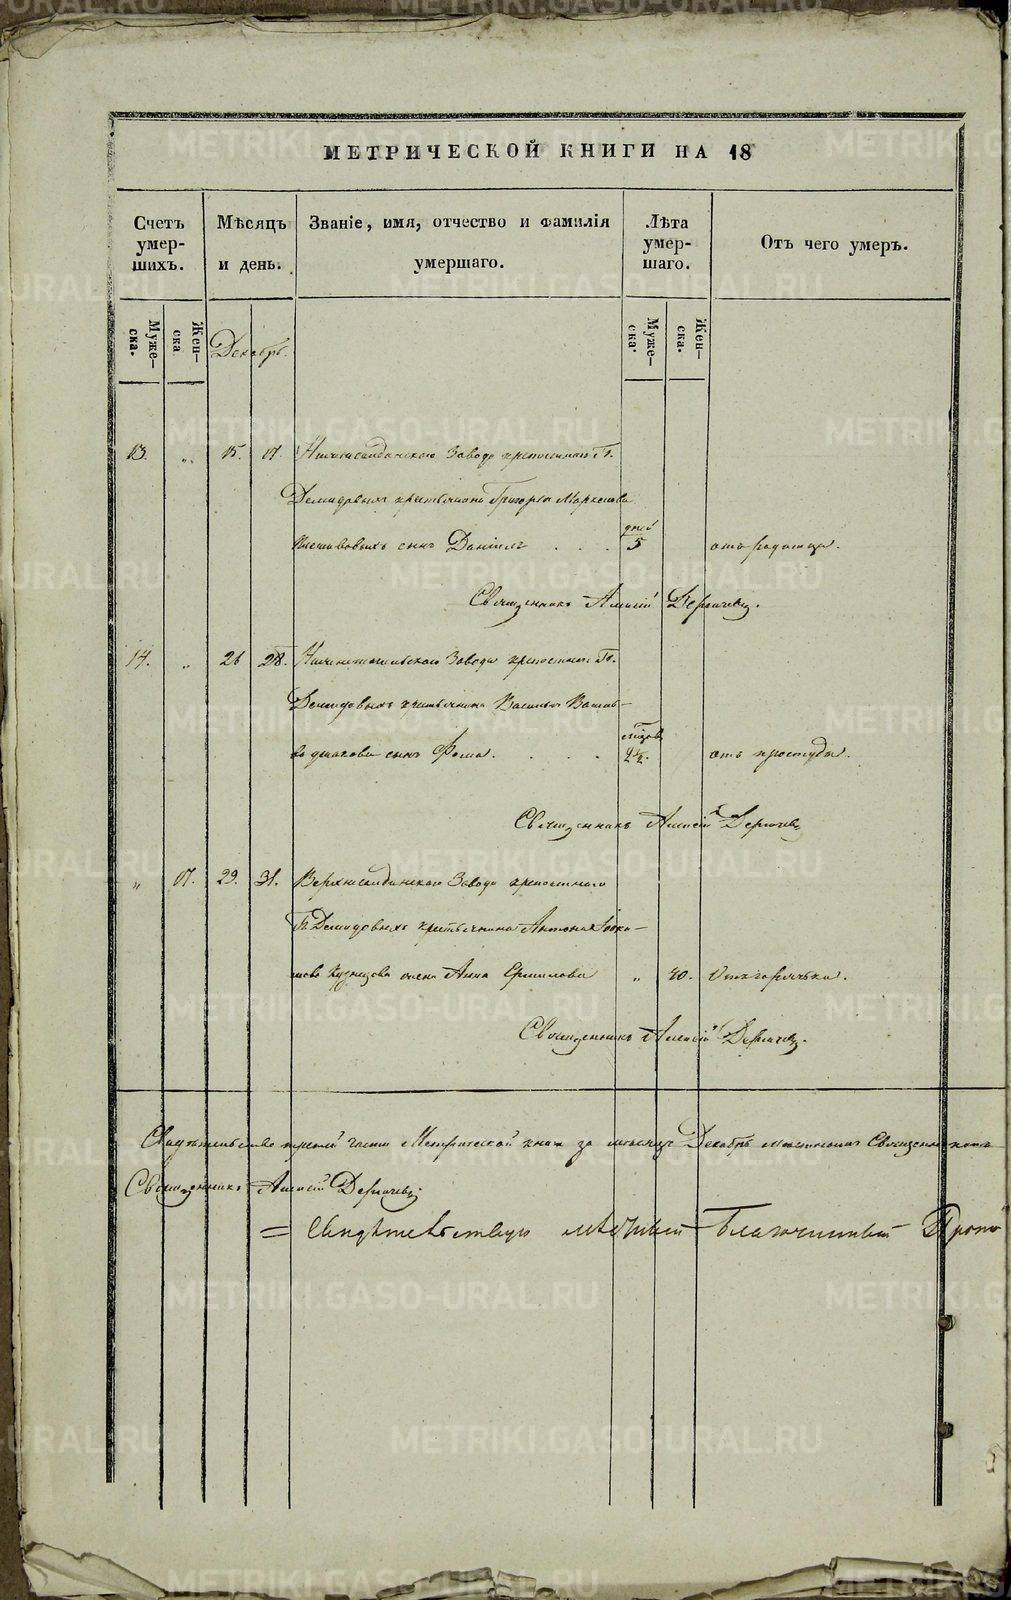 МЕТРИЧЕСКОЙ КНИГИ НА 18
Счетъ умер-шихъ.
Мѣсяцъ и день.
Званіе, имя, отчество и фамилія умершаго.
Лѣта умер-шаго.
Отъ чего умеръ.
Муже-ска.
Жен-ска
Муже-ска.
Жен-ска.
Декабрь.
13. „ 15. 17. Нижнесалдинскаго Завода крепостнаго Гг.
Демидовыхъ крестьянина Григорья Маркелова
сынъ Даніилъ . . . дней 5 отъ родимца.
Священникъ Алексій Дерпачевъ.
14. „ 26 28. Нижнетагильскаго Завода крепостнаго Гг.
Демидовыхъ крестьянина Василья
сынъ Фома. . . . 2½. отъ простуды.
Священникъ Алексій
„ 17. 29. 31. Верхнесалдинскаго Завода крепостнаго
Гг. Демидовыхъ крестьянина Антона
Кузнецова жена Анна Ермилова „ 40. Отъ горячьки.
Священникъ Алексій
Свидѣтельство третьей части Метрической книги за мѣсяцъ Декабрь
Священникъ Алексій
= Свидѣтельствую мѣстный Благочинный Прото
METRIKI.GASO-URAL.RU